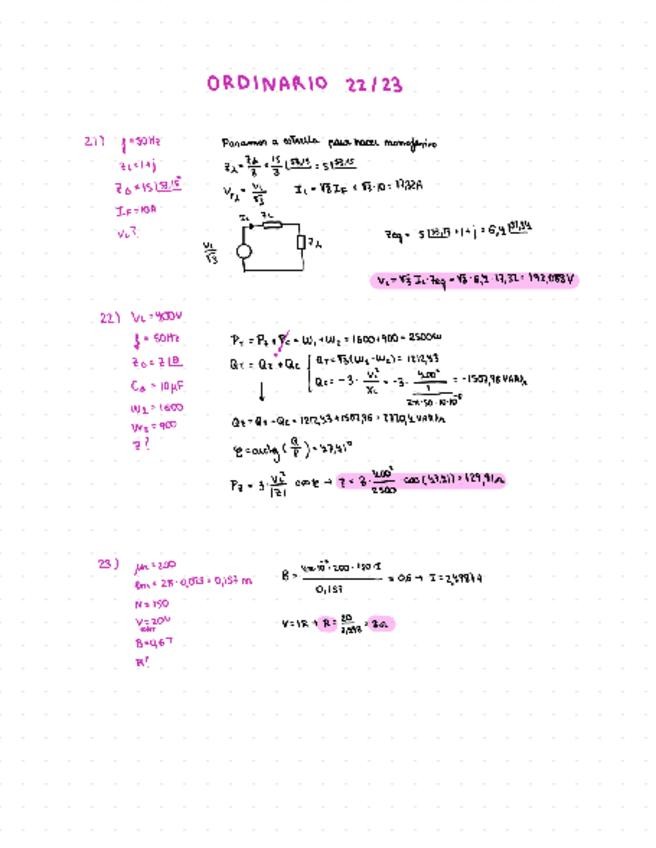 ORDINARIO 22/23
21) f = 50Hz
Z_L = 1+j
Z_Δ = 15∠53,13°
I_F = 10A
V_L?
Pasamos a estrella para hacer monofásico
Z_λ = Z_Δ/3 = 15/3 ∠53,13 = 5∠53,13
V_Fλ = V_L/√3 I_L = √3 I_F = √3·10 = 17,32A
I_L Z_L
V_L/√3
Z_λ
V_L = √3 I_L · Zeq = √3 · 6,4 · 17,32 = 192,088V
22) V_L = 400V
f = 50Hz
C_Δ = 10µF
W_1 = 1600
W_2 = 900
Z?
P_T = P_Z + P_C = W_1 + W_2 = 1600+900 = 2500W
Q_T = Q_Z + Q_C
Q_T = √3(W_1-W_2) = 1212,43
Q_C = -3 · V_L²/X_C = -3 · 400²/(1/(2π·50·10·10⁻⁶)) = -1507,96 VAR
Q_Z = Q_T - Q_C = 1212,43+1507,96 =
φ = arctg (Q/P) = 47,41°
P_Z = 3 · V_L²/|Z| cos φ → Z = 3 · 400²/2500 cos(47,41) = 129,91Ω
23) µr = 200
lm = 2π · 0,025 = 0,157 m
N = 150
V = 20V
cont
R?
0,157
V = IR → R = = 8Ω